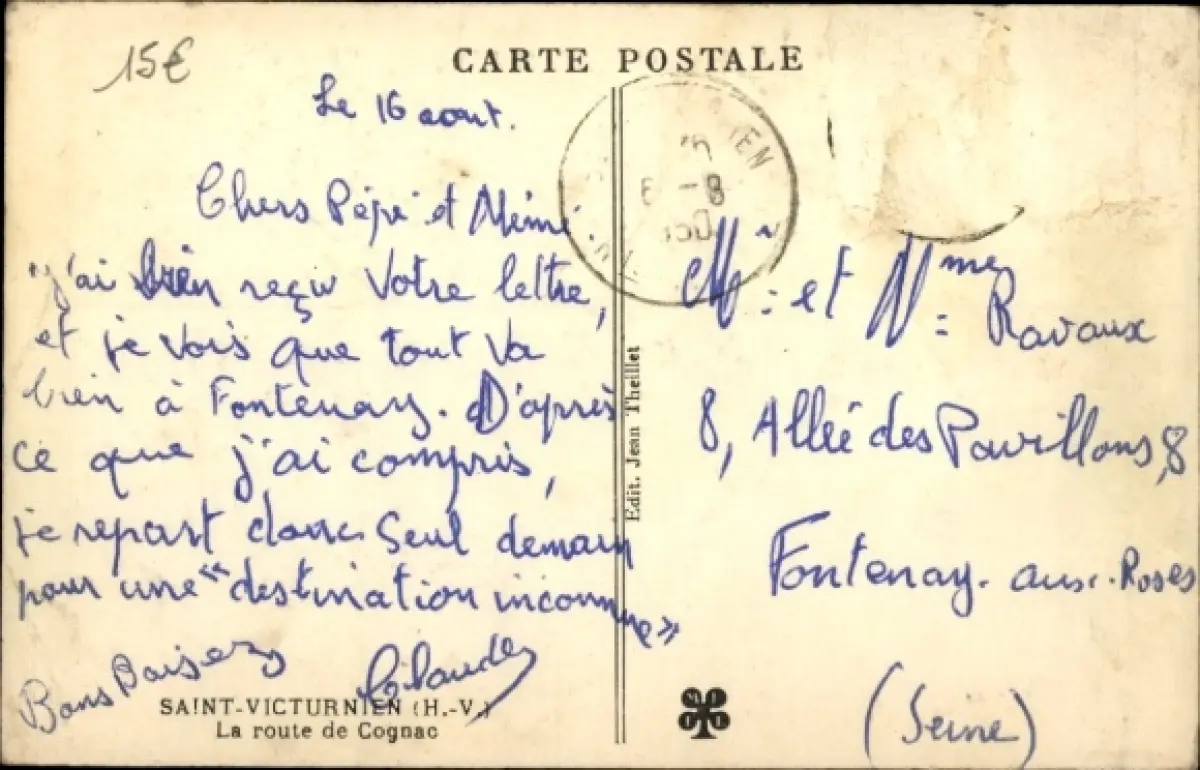 15€
CARTE POSTALE
Le 16 aout.
Chers Pépé et Mémé.
"j'ai bien reçu votre lettre,
et je vois que tout va
bien à Fontenay. D'après
ce que j'ai compris,
je repart donc seul demain
pour une "destination inconnue"
Bons Baisers
Claude
SAINT-VICTURNIEN (H.-V.)
La route de Cognac
Edit. Jean Theillet
IEN
8 - 8
Mr et Mme Ravaux
8, Allée des Pavillons, 8
Fontenay-aux-Roses
(Seine)